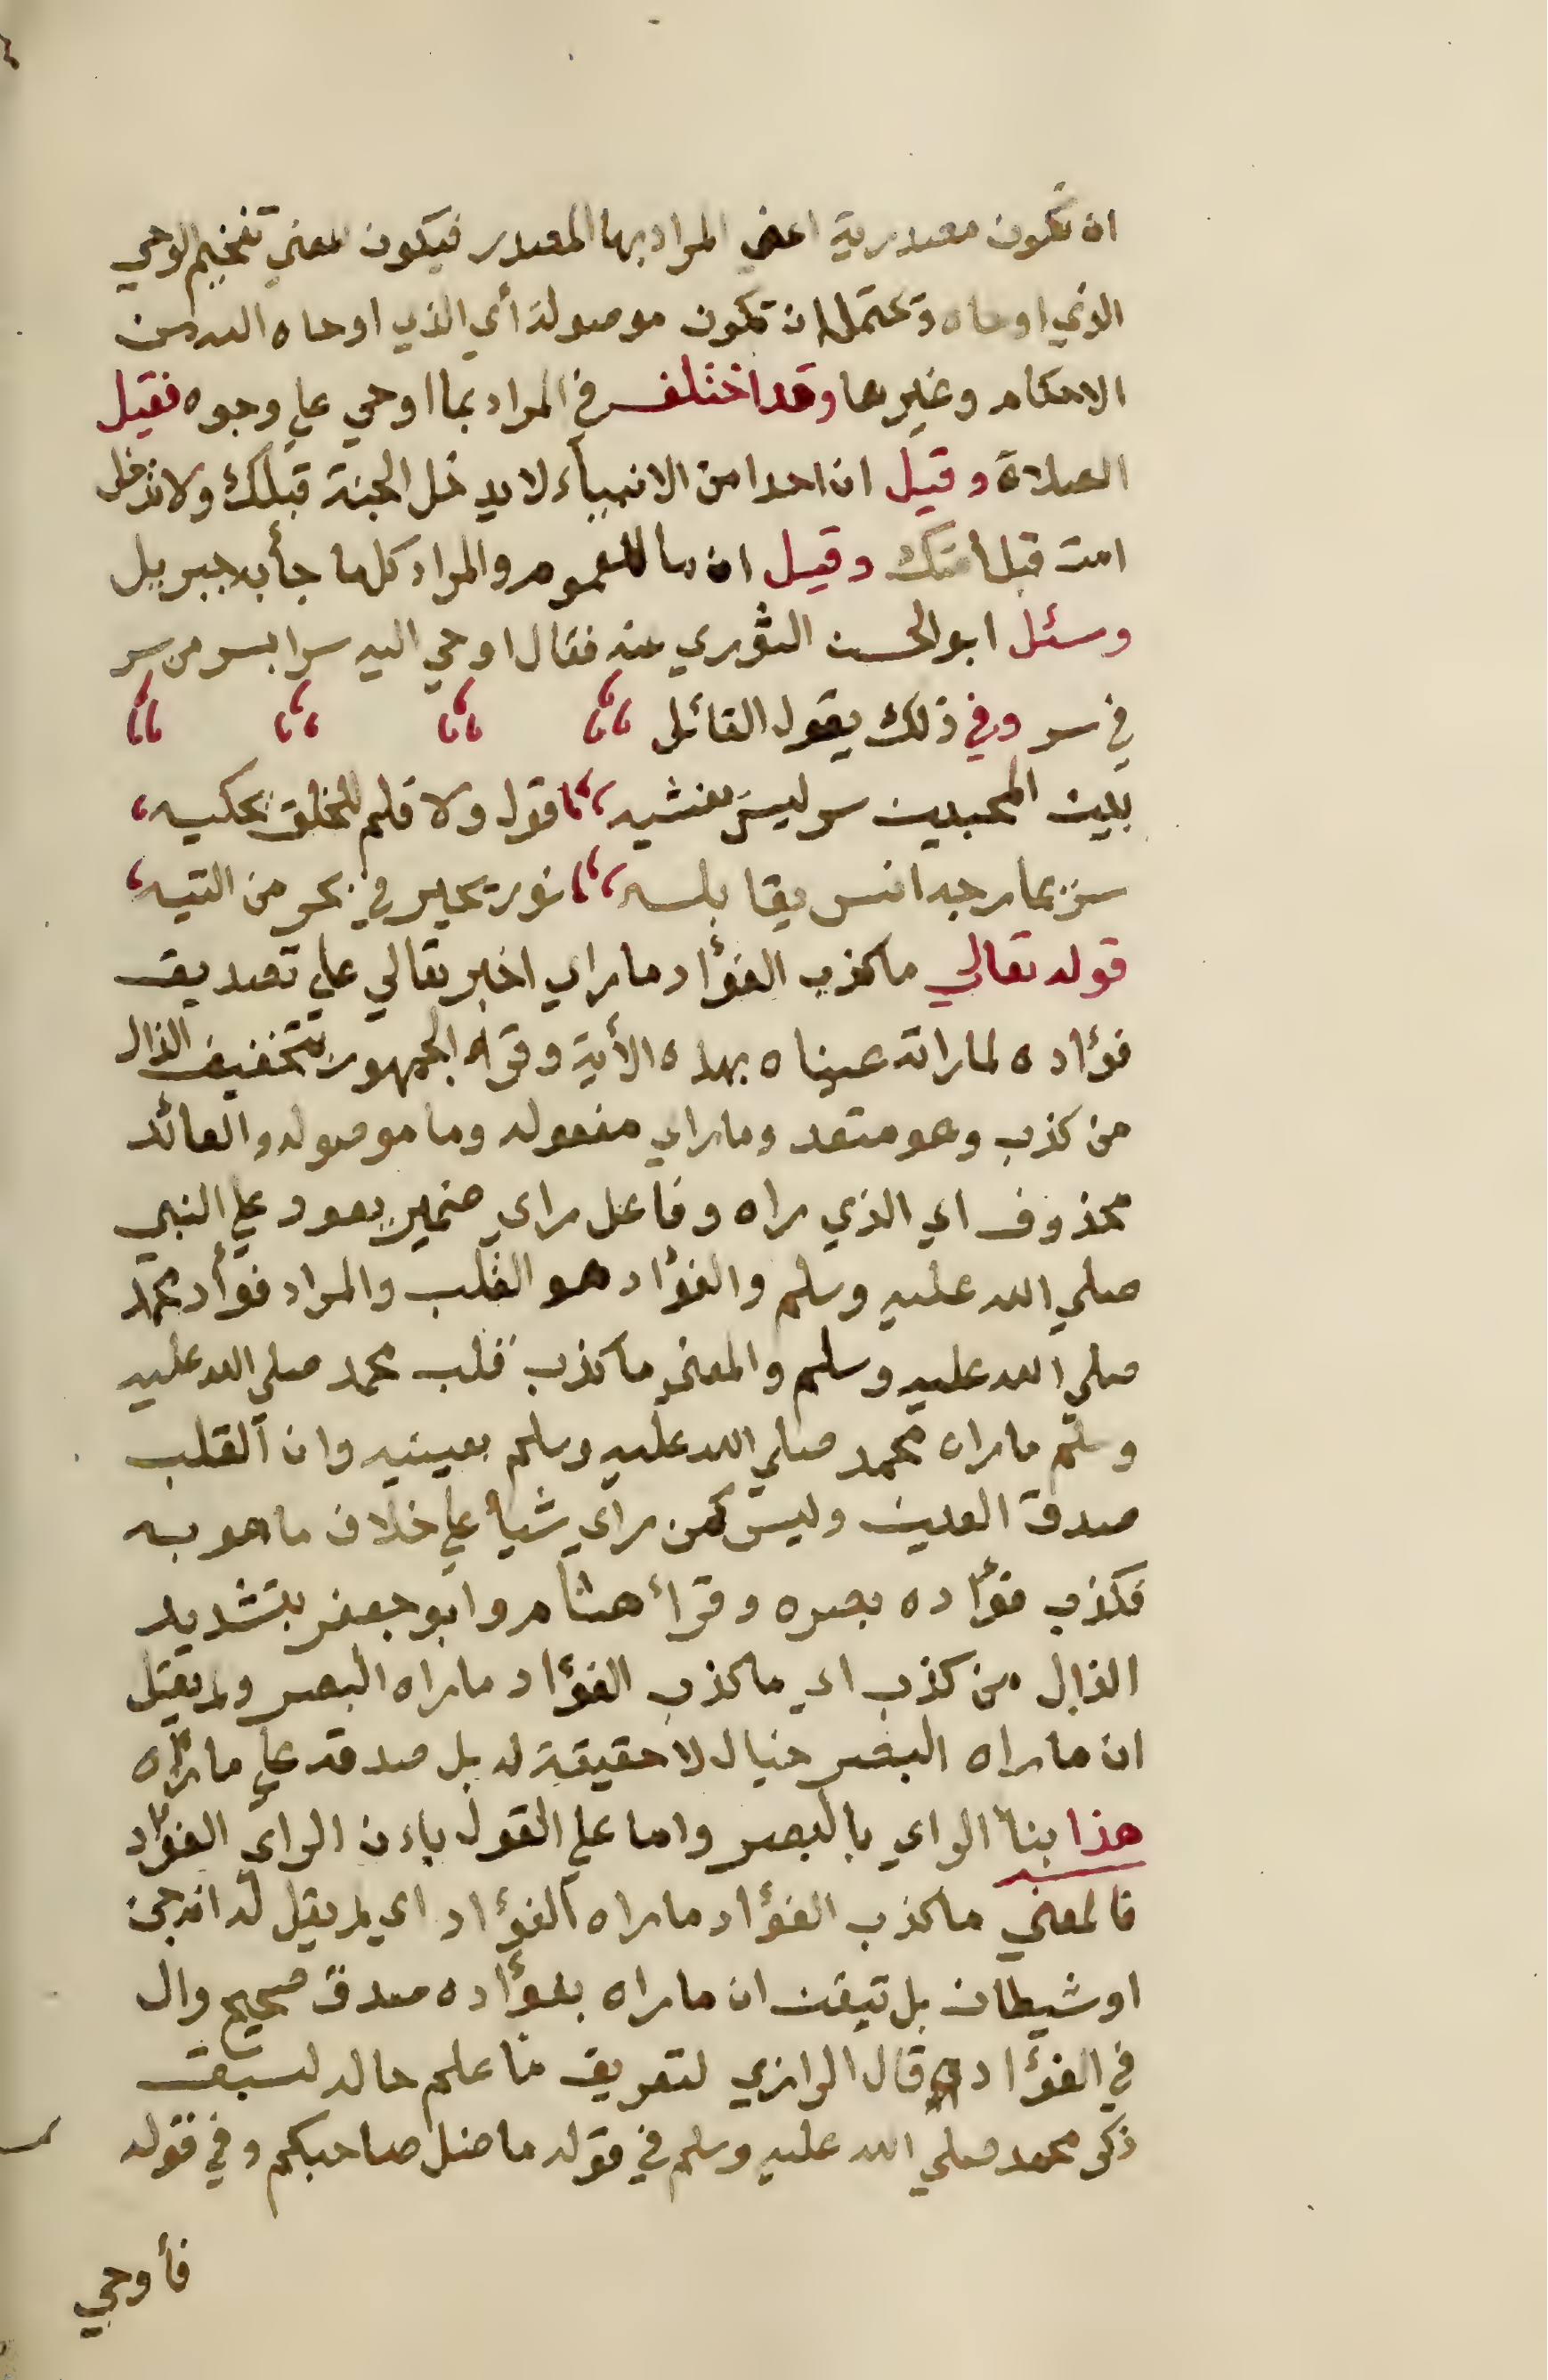 ان تكون مصدرية اعني المراد بها المصدر فيكون المعني تفخيم الوحي
الذي اوحاه وتحتمل ان تكون موصولة أي الذي اوحاه الله من
الاحكام وغيرها وقد اختلف في المراد بما اوحي علي وجوه فقيل
الصلاة وقيل ان احدا من الانبياء لا يدخل الجنة قبلك ولا تدخل
امة قبل أمتك وقيل ان ما للعموم والمراد كلما جأ به جبريل
وسئل ابو الحسن الثوري عنه فقال اوحي اليه سرا بسر من سر
في سر وفي ذلك يقول القائل
بين المحبين سر ليس يفشيه ، قول ولا قلم للخلق يحكيه ،
سر يمازجه انس يقابله ، نور تحير في بحر من التيه ،
قوله تعالي ما كذب الفؤاد ما راي اخبر تعالي علي تصديق
فؤاده لما راته عيناه بهذه الأية وقرأه الجمهور بتخفيف الذال
من كذب وهو متعد وما راي مفعوله وما موصوله والعائد
محذوف اي الذي راه وفاعل راي ضمير يعود علي النبي
صلي الله عليه وسلم والفؤاد هو القلب والمراد فوأد محمد
صلي الله عليه وسلم والمعني ما كذب قلب محمد صلي الله عليه
وسلم ما راه محمد صلي الله عليه وسلم بعينيه وان القلب
صدق العين وليس كمن راي شيأ علي خلاف ما هو به
فكذب فؤاده بصره وقرأ هشام وابو جعفر بتشديد
الذال من كذب اي ما كذب الفؤاد ما راه البصر ولم يقل
ان ما راه البصر خيال لا حقيقة له بل صدقه علي ما راه
هذا بنأ الراي بالبصر واما علي القول باءن الراي الفؤاد
فالمعني ما كذب الفؤاد ما راه الفؤاد اي لم يقل له انه جن
او شيطان بل تيقن ان ما راه بفؤاده صدق صحيح وال
في الفؤاد قال الرازي لتعريف ما علم حاله لسبق
ذكر محمد صلي الله عليه وسلم في قوله ما ضل صاحبكم وفي قوله
فأوحي